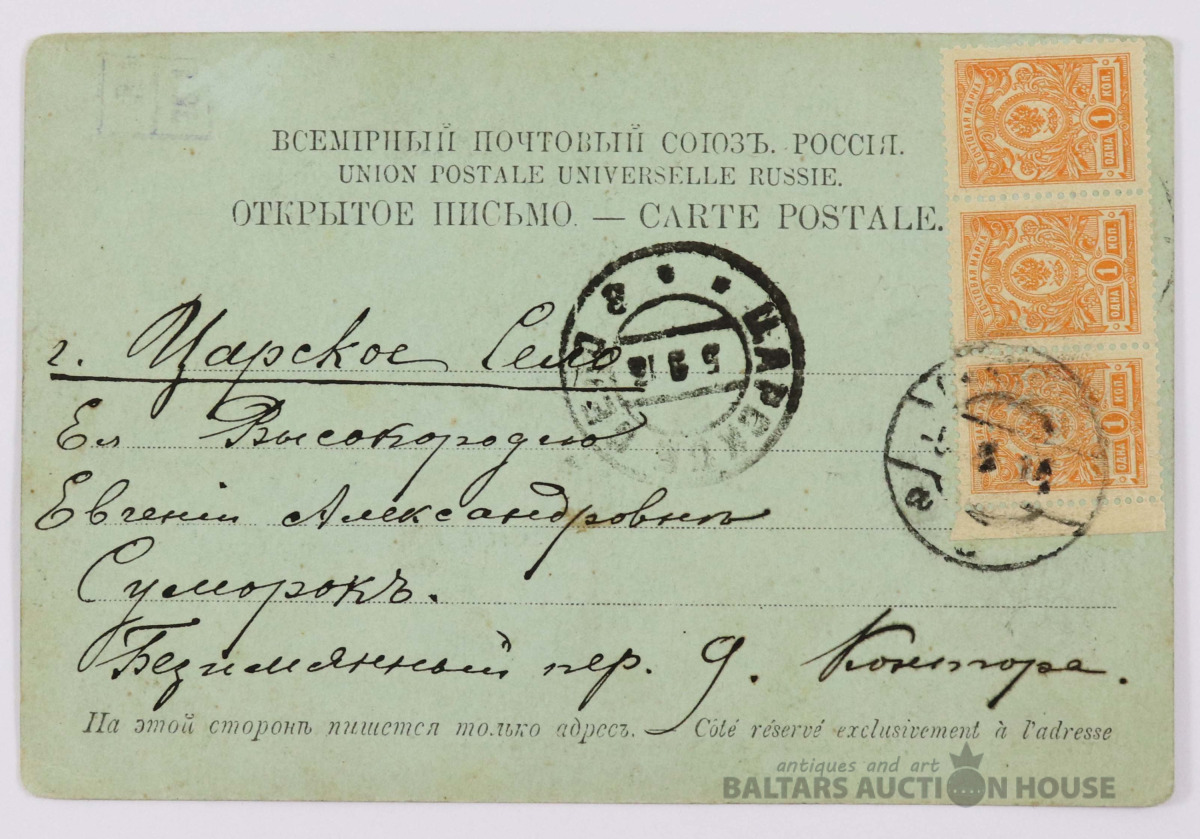 ВСЕМІРНЫЙ ПОЧТОВЫЙ СОЮЗЪ. РОССІЯ.
UNION POSTALE UNIVERSELLE RUSSIE.
ОТКРЫТОЕ ПИСЬМО. — CARTE POSTALE.
ПОЧТОВАЯ МАРКА
1 КОП.
ОДНА
ПОЧТОВАЯ МАРКА
1 КОП.
ОДНА
1 КОП.
ОДНА
г. Царское Село
Ея Высокородію
Евгеніи Александровнѣ
Суморокъ.
Безимянный пер. 9. Контора.
На этой сторонѣ пишется только адресъ. — Côté réservé exclusivement à l'adresse
antiques and art
BALTARS AUCTION HOUSE